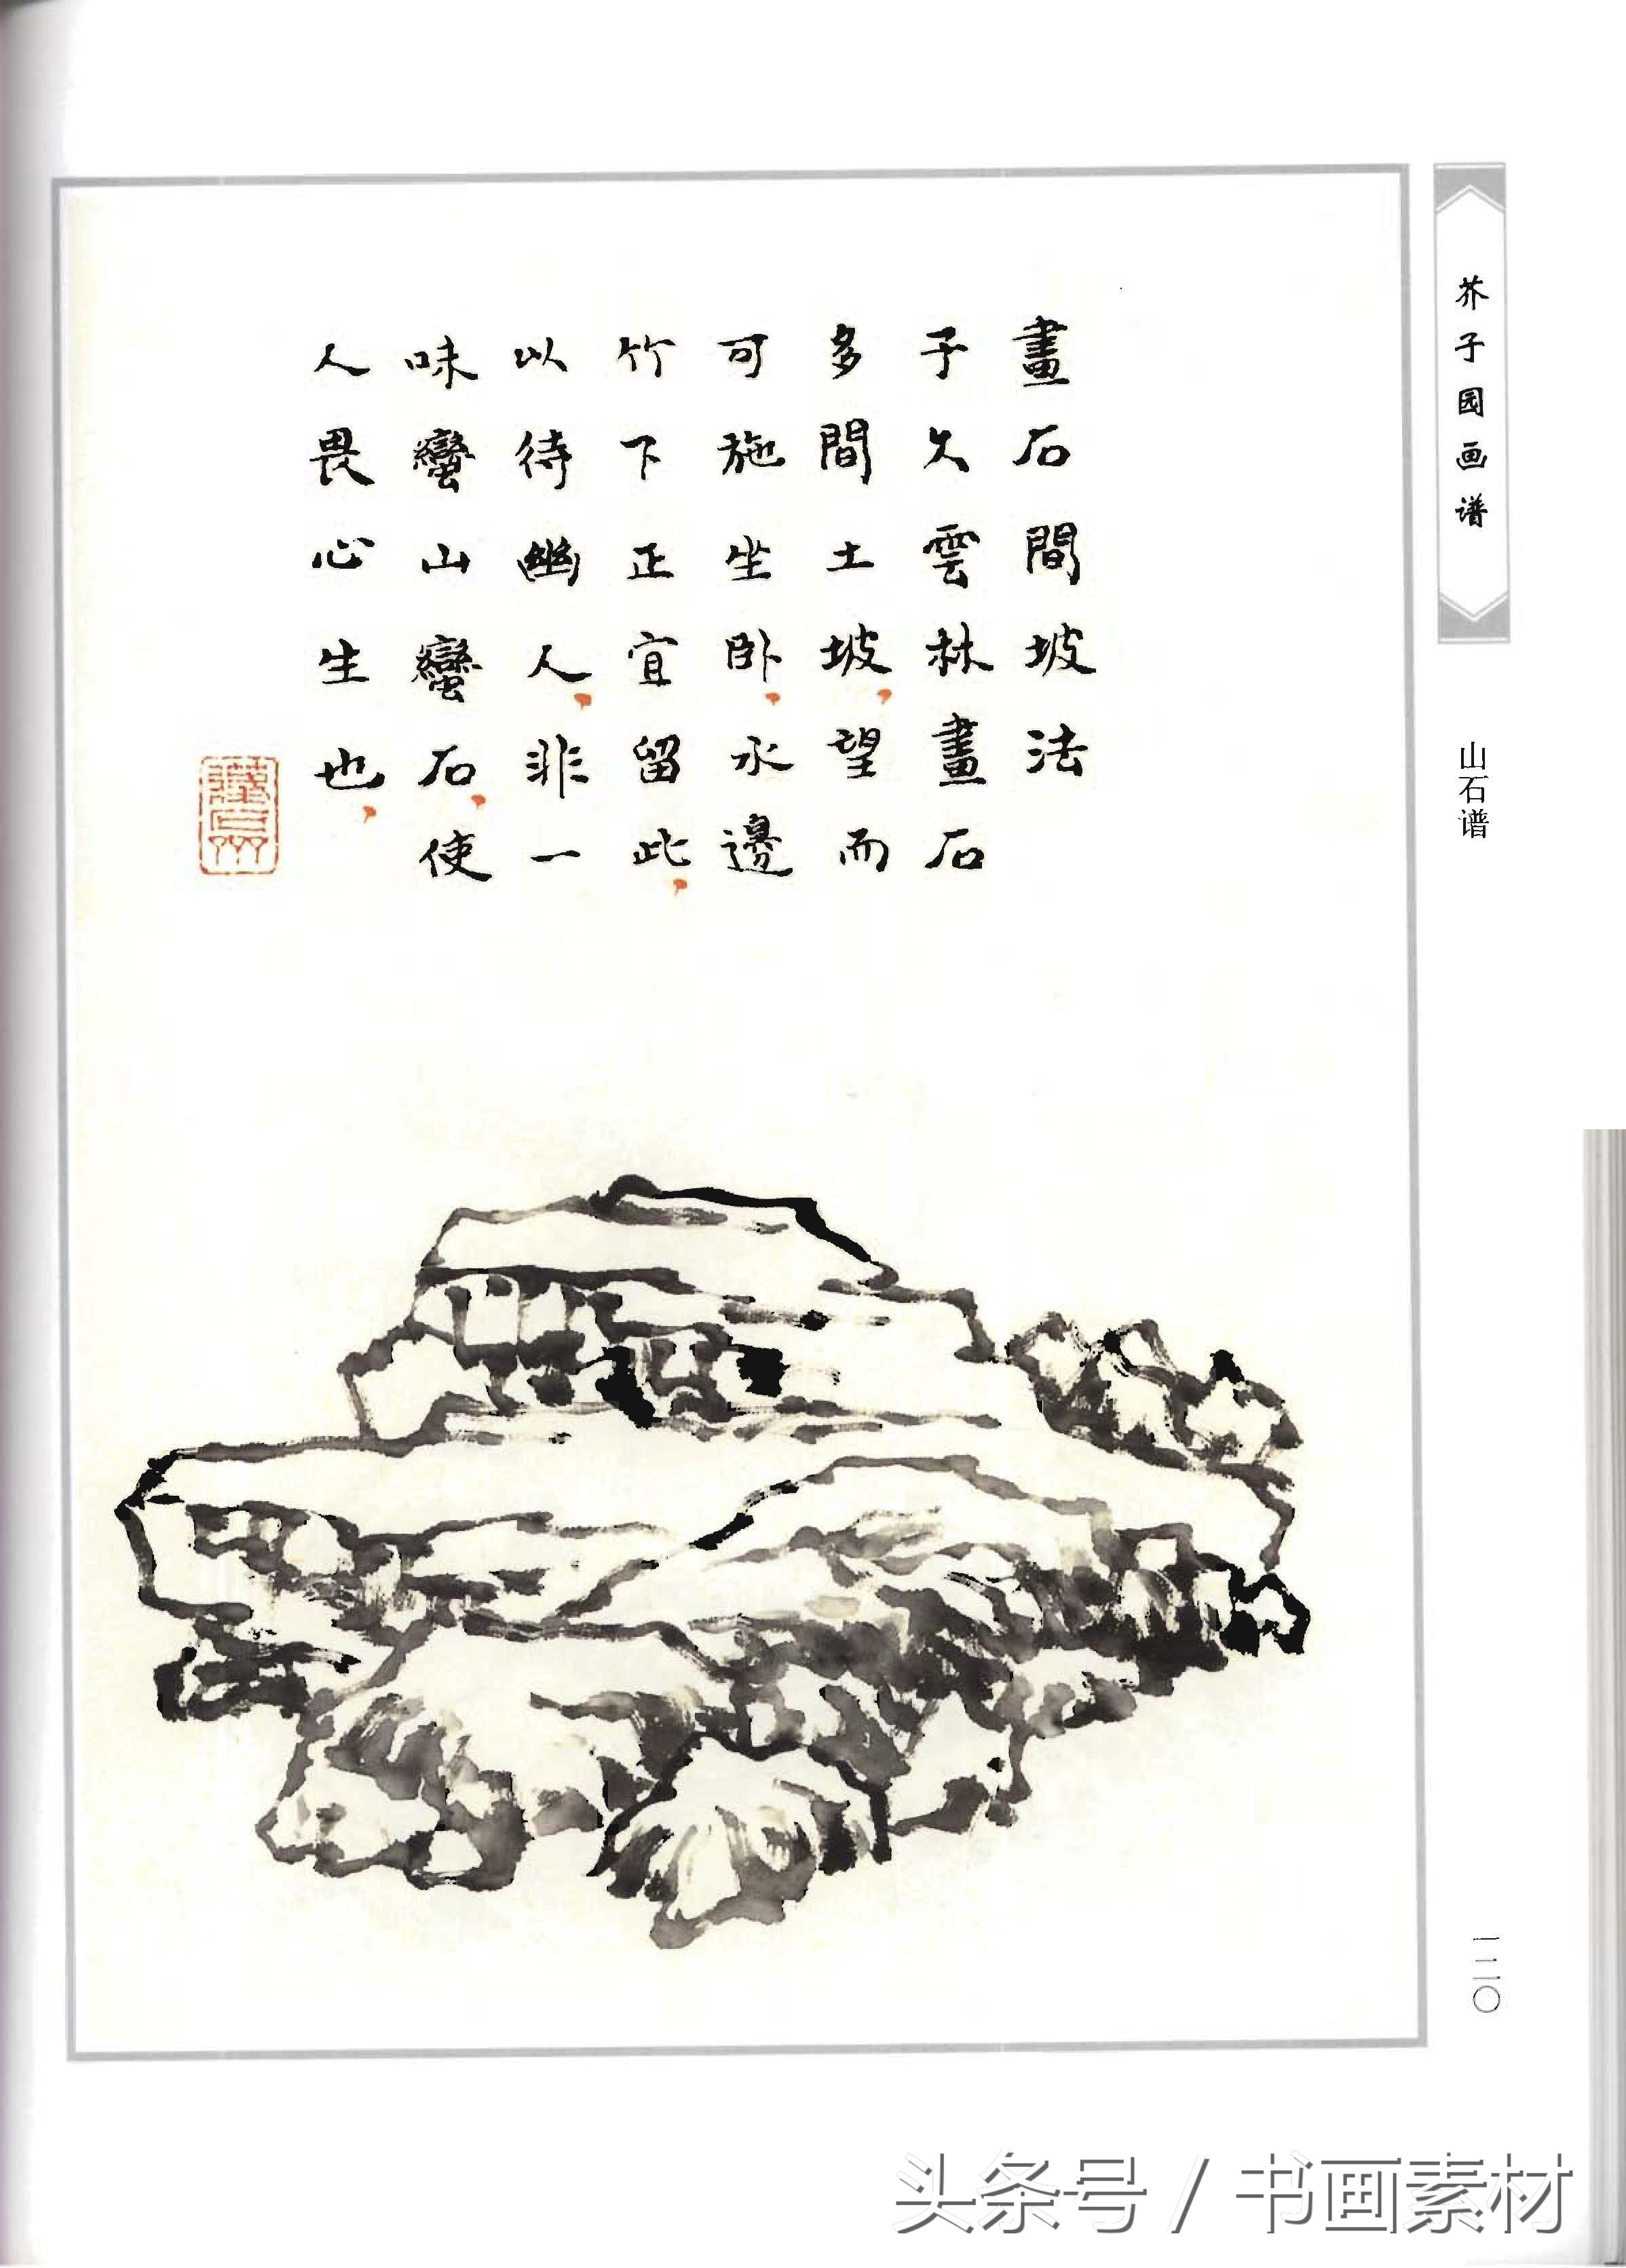 芥子园画谱
山石谱
畫石間坡法
子久雲林畫石
多間土坡望而
可施坐卧水邊
竹下正宜留此
以待幽人非一
味蠻山蠻石使
人畏心生也
一二〇
头条号 / 书画素材